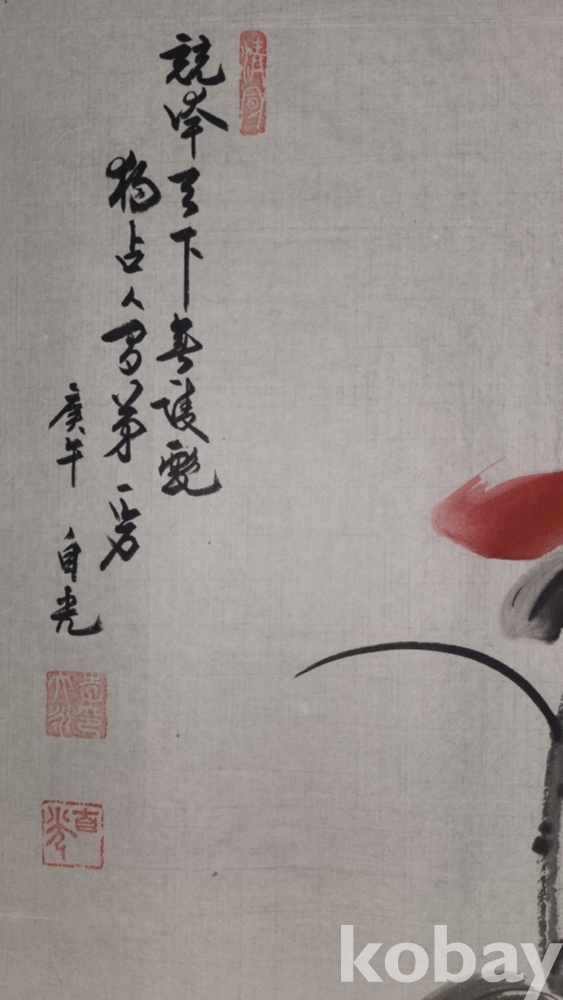 競夸天下無雙艷
獨占人間第一芳
庚午 自光
kobay